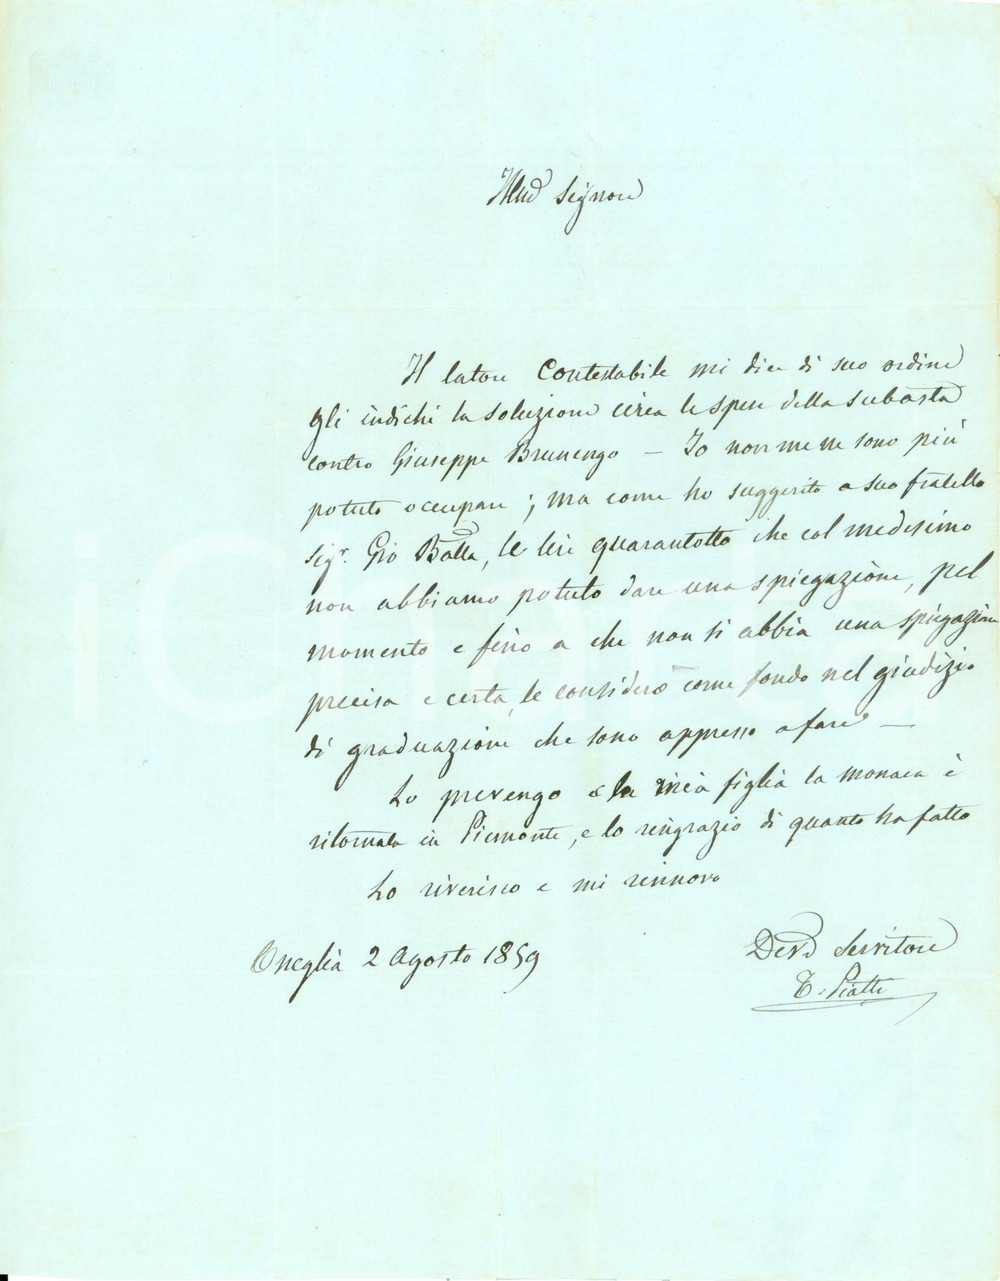 Illmo Signore
Il latore Contestabile mi dice di suo ordine
gli indichi la soluzione circa le spese della subasta
contro Giuseppe Brunengo — Io non me ne sono più
potuto occupare; ma come ho suggerito a suo fratello
sigr. Gio Batta, le lire quarantotto che col medesimo
non abbiamo potuto dare una spiegazione, pel
momento e fino a che non si abbia una spiegazione
precisa e certa, le considero come fondo nel giudizio
di graduazione che sono appresso a fare —
Lo prevengo la mia figlia la monaca è
ritornata in Piemonte, e lo ringrazio di quanto ha fatto
Lo riverisco e mi rinnovo
Oneglia 2 Agosto 1859
Devo Servitore
Piatti
iCharta